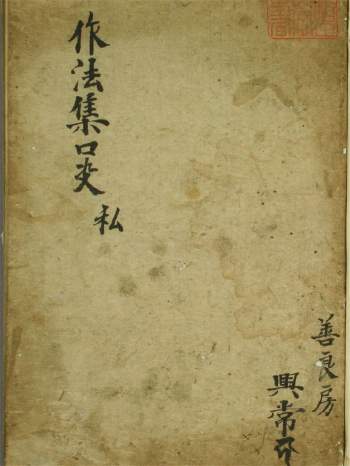 作法集口夾
私
善良房
興常